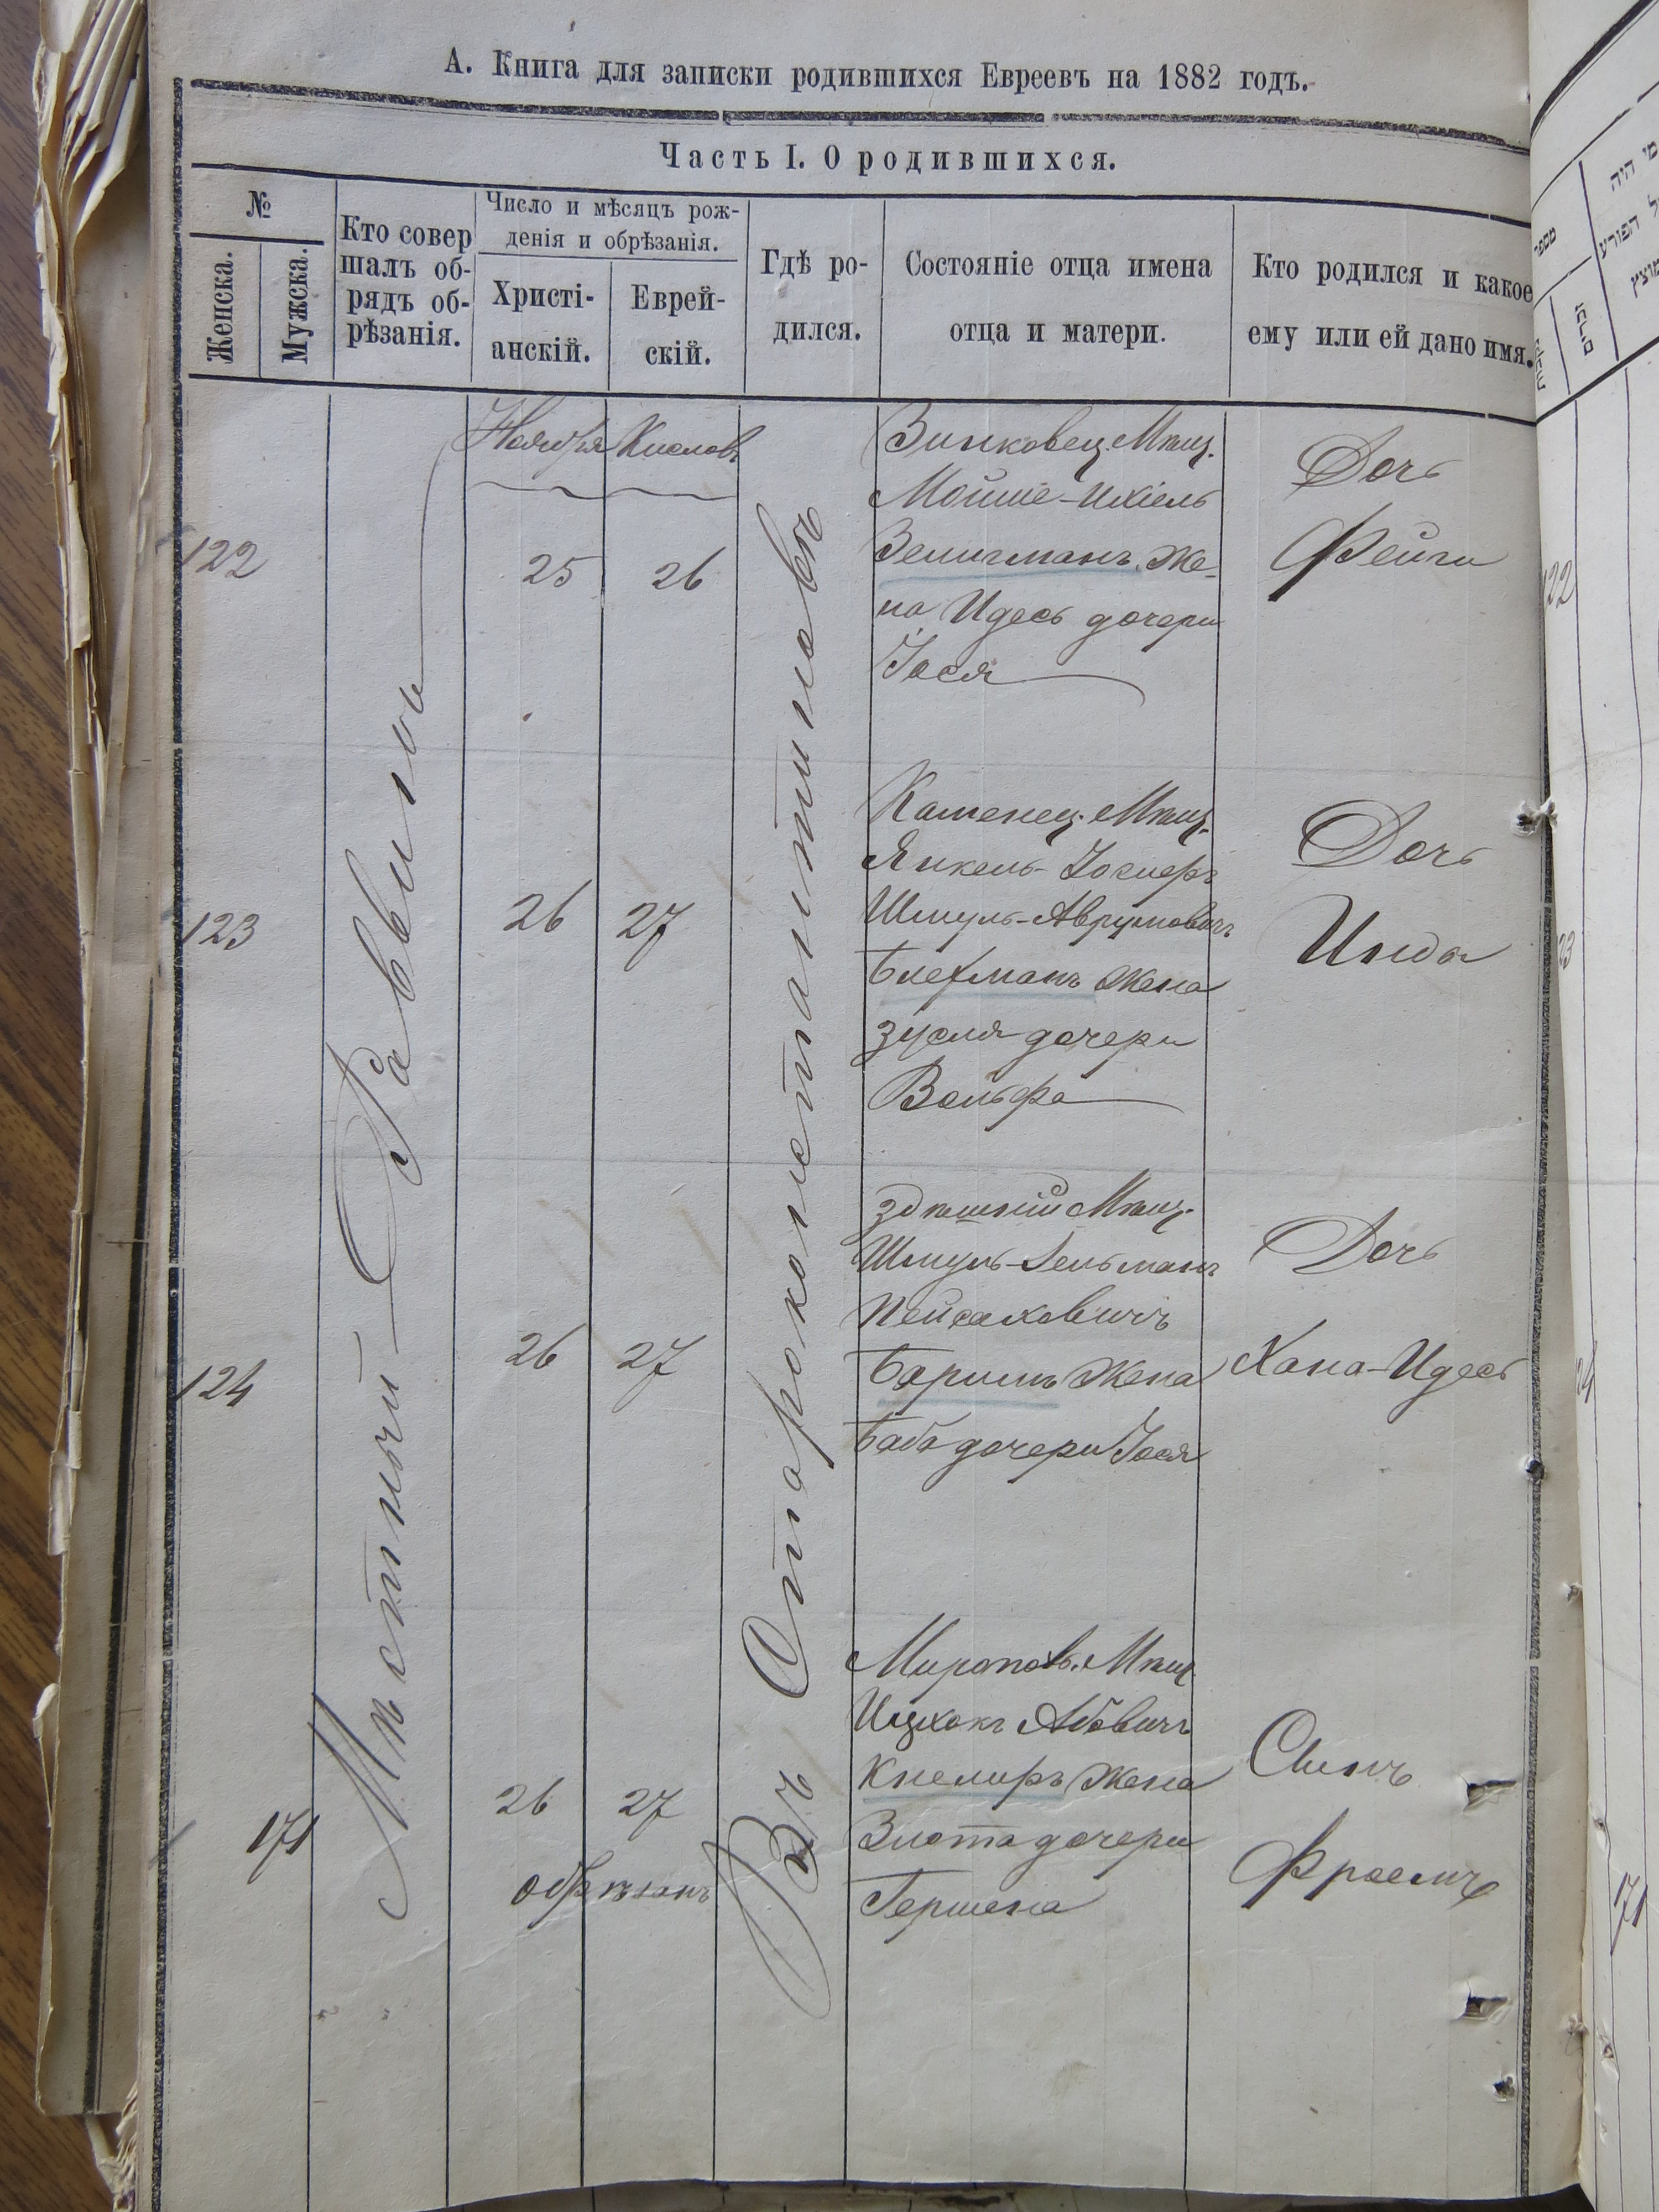 А. Книга для записки родившихся Евреевъ на 1882 годъ.
Часть I. О родившихся.
№
Женска.
Мужска.
Кто совер
шалъ об-
рядъ об-
рѣзанія.
Число и мѣсяцъ рож-
денія и обрѣзанія.
Христі-
анскій.
Еврей-
скій.
Гдѣ ро-
дился.
Состояніе отца имена
отца и матери.
Кто родился и какое
ему или ей дано имя.
Мѣстный Раввинъ
Въ Староконстантиновѣ
Ноября Кислов
122
25
26
Зинковец. Мѣщ.
Мойше-Ихіель
Зелигманъ Же-
на Идесь дочери
Іося
Дочь
Фейги
123
26
27
Каменец. Мѣщ.
Янкель-
Шмуль-Аврумовичъ
Блехманъ Жена
Зуслядочери
Вольфа
Дочь
Инда
124
26
27
Здѣшній Мѣщ.
Шмуль-Зельманъ
Пейсаховичъ
Жена
Баба дочери Іося
Дочь
Хана-Идесь
171
26
27
обрѣзанъ
Миропов. Мѣщ.
Ицхокъ Абовичъ
Кнелиръ Жена
Злота дочери
Гершена
Сынъ
Фроемъ
122
171
מי היה